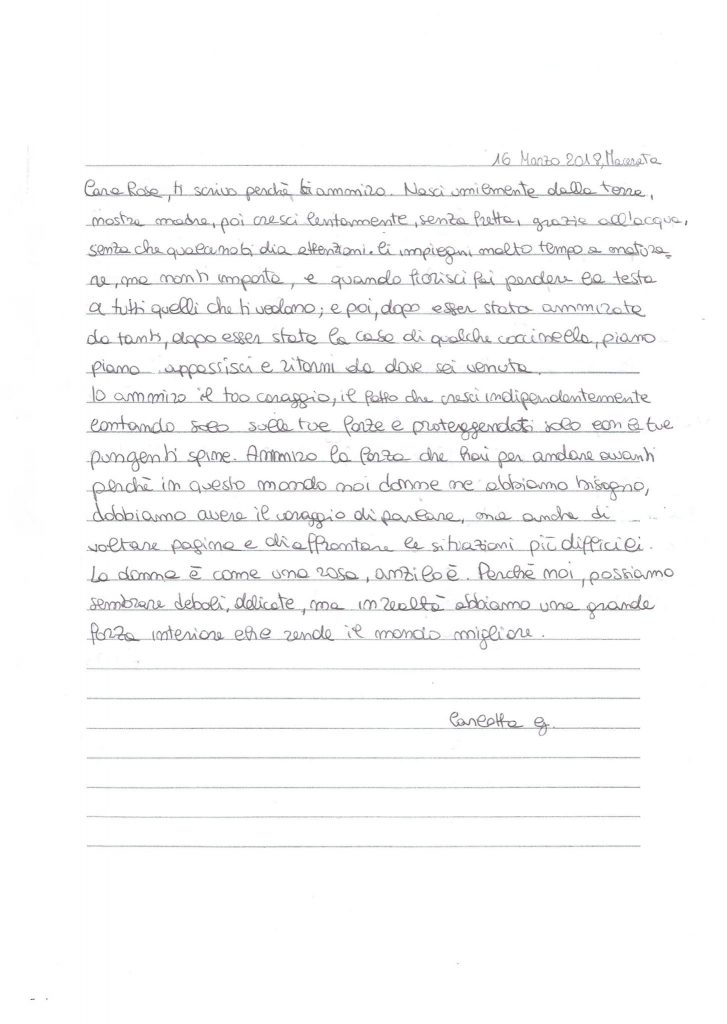 16 Marzo 2018, Macerata
Cara Rosa, ti scrivo perchè ti ammiro. Nasci umilmente dalla terra,
nostra madre, poi cresci lentamente, senza fretta, grazie all'acqua,
senza che qualcuno ti dia attenzioni. Ci impieghi molto tempo a matura-
re, ma non ti importa, e quando fiorisci fai perdere la testa
a tutti quelli che ti vedono; e poi, dopo esser stata ammirata
da tanti, dopo esser stata la casa di qualche coccinella, piano
piano appassisci e ritorni da dove sei venuta.
Io ammiro il tuo coraggio, il fatto che cresci indipendentemente
contando solo sulle tue forze e proteggendoti solo con le tue
pungenti spine. Ammiro la forza che hai per andare avanti
perchè in questo mondo noi donne ne abbiamo bisogno,
dobbiamo avere il coraggio di parlare, ma anche di
voltare pagina e di affrontare le situazioni più difficili.
La donna è come una rosa, anzi lo è. Perchè noi, possiamo
sembrare deboli, delicate, ma in realtà abbiamo una grande
forza interiore che rende il mondo migliore.
Carlotta G.